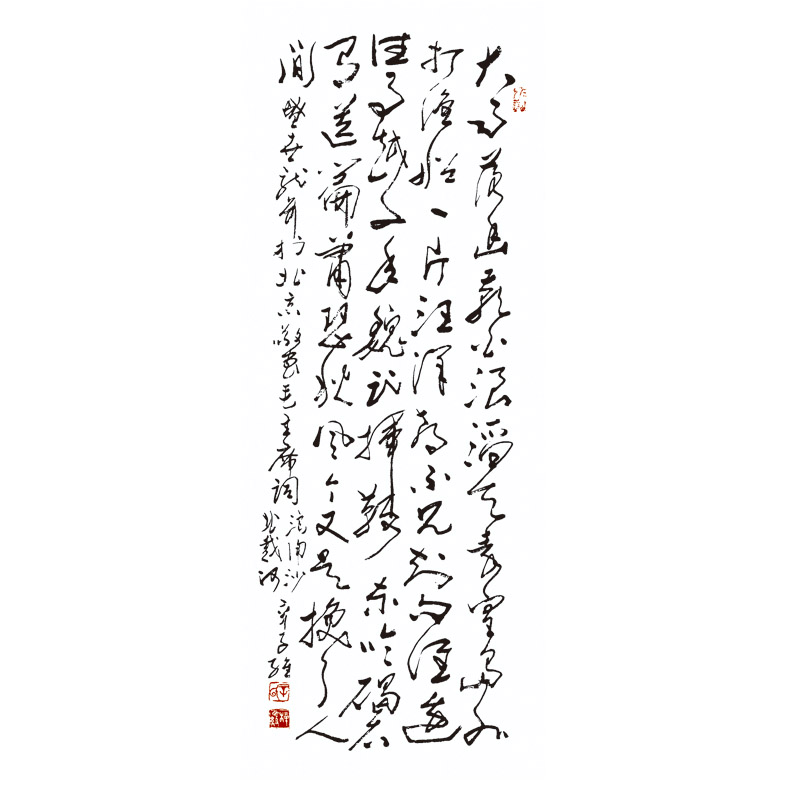 大雨落幽燕白浪滔天秦皇岛外
打渔船一片汪洋都不见知向谁边
往事越千年魏武挥鞭东临碣石
有遗篇萧瑟秋风今又是换了人
间
龙年于北京敬书毛主席词浪淘沙
北戴河